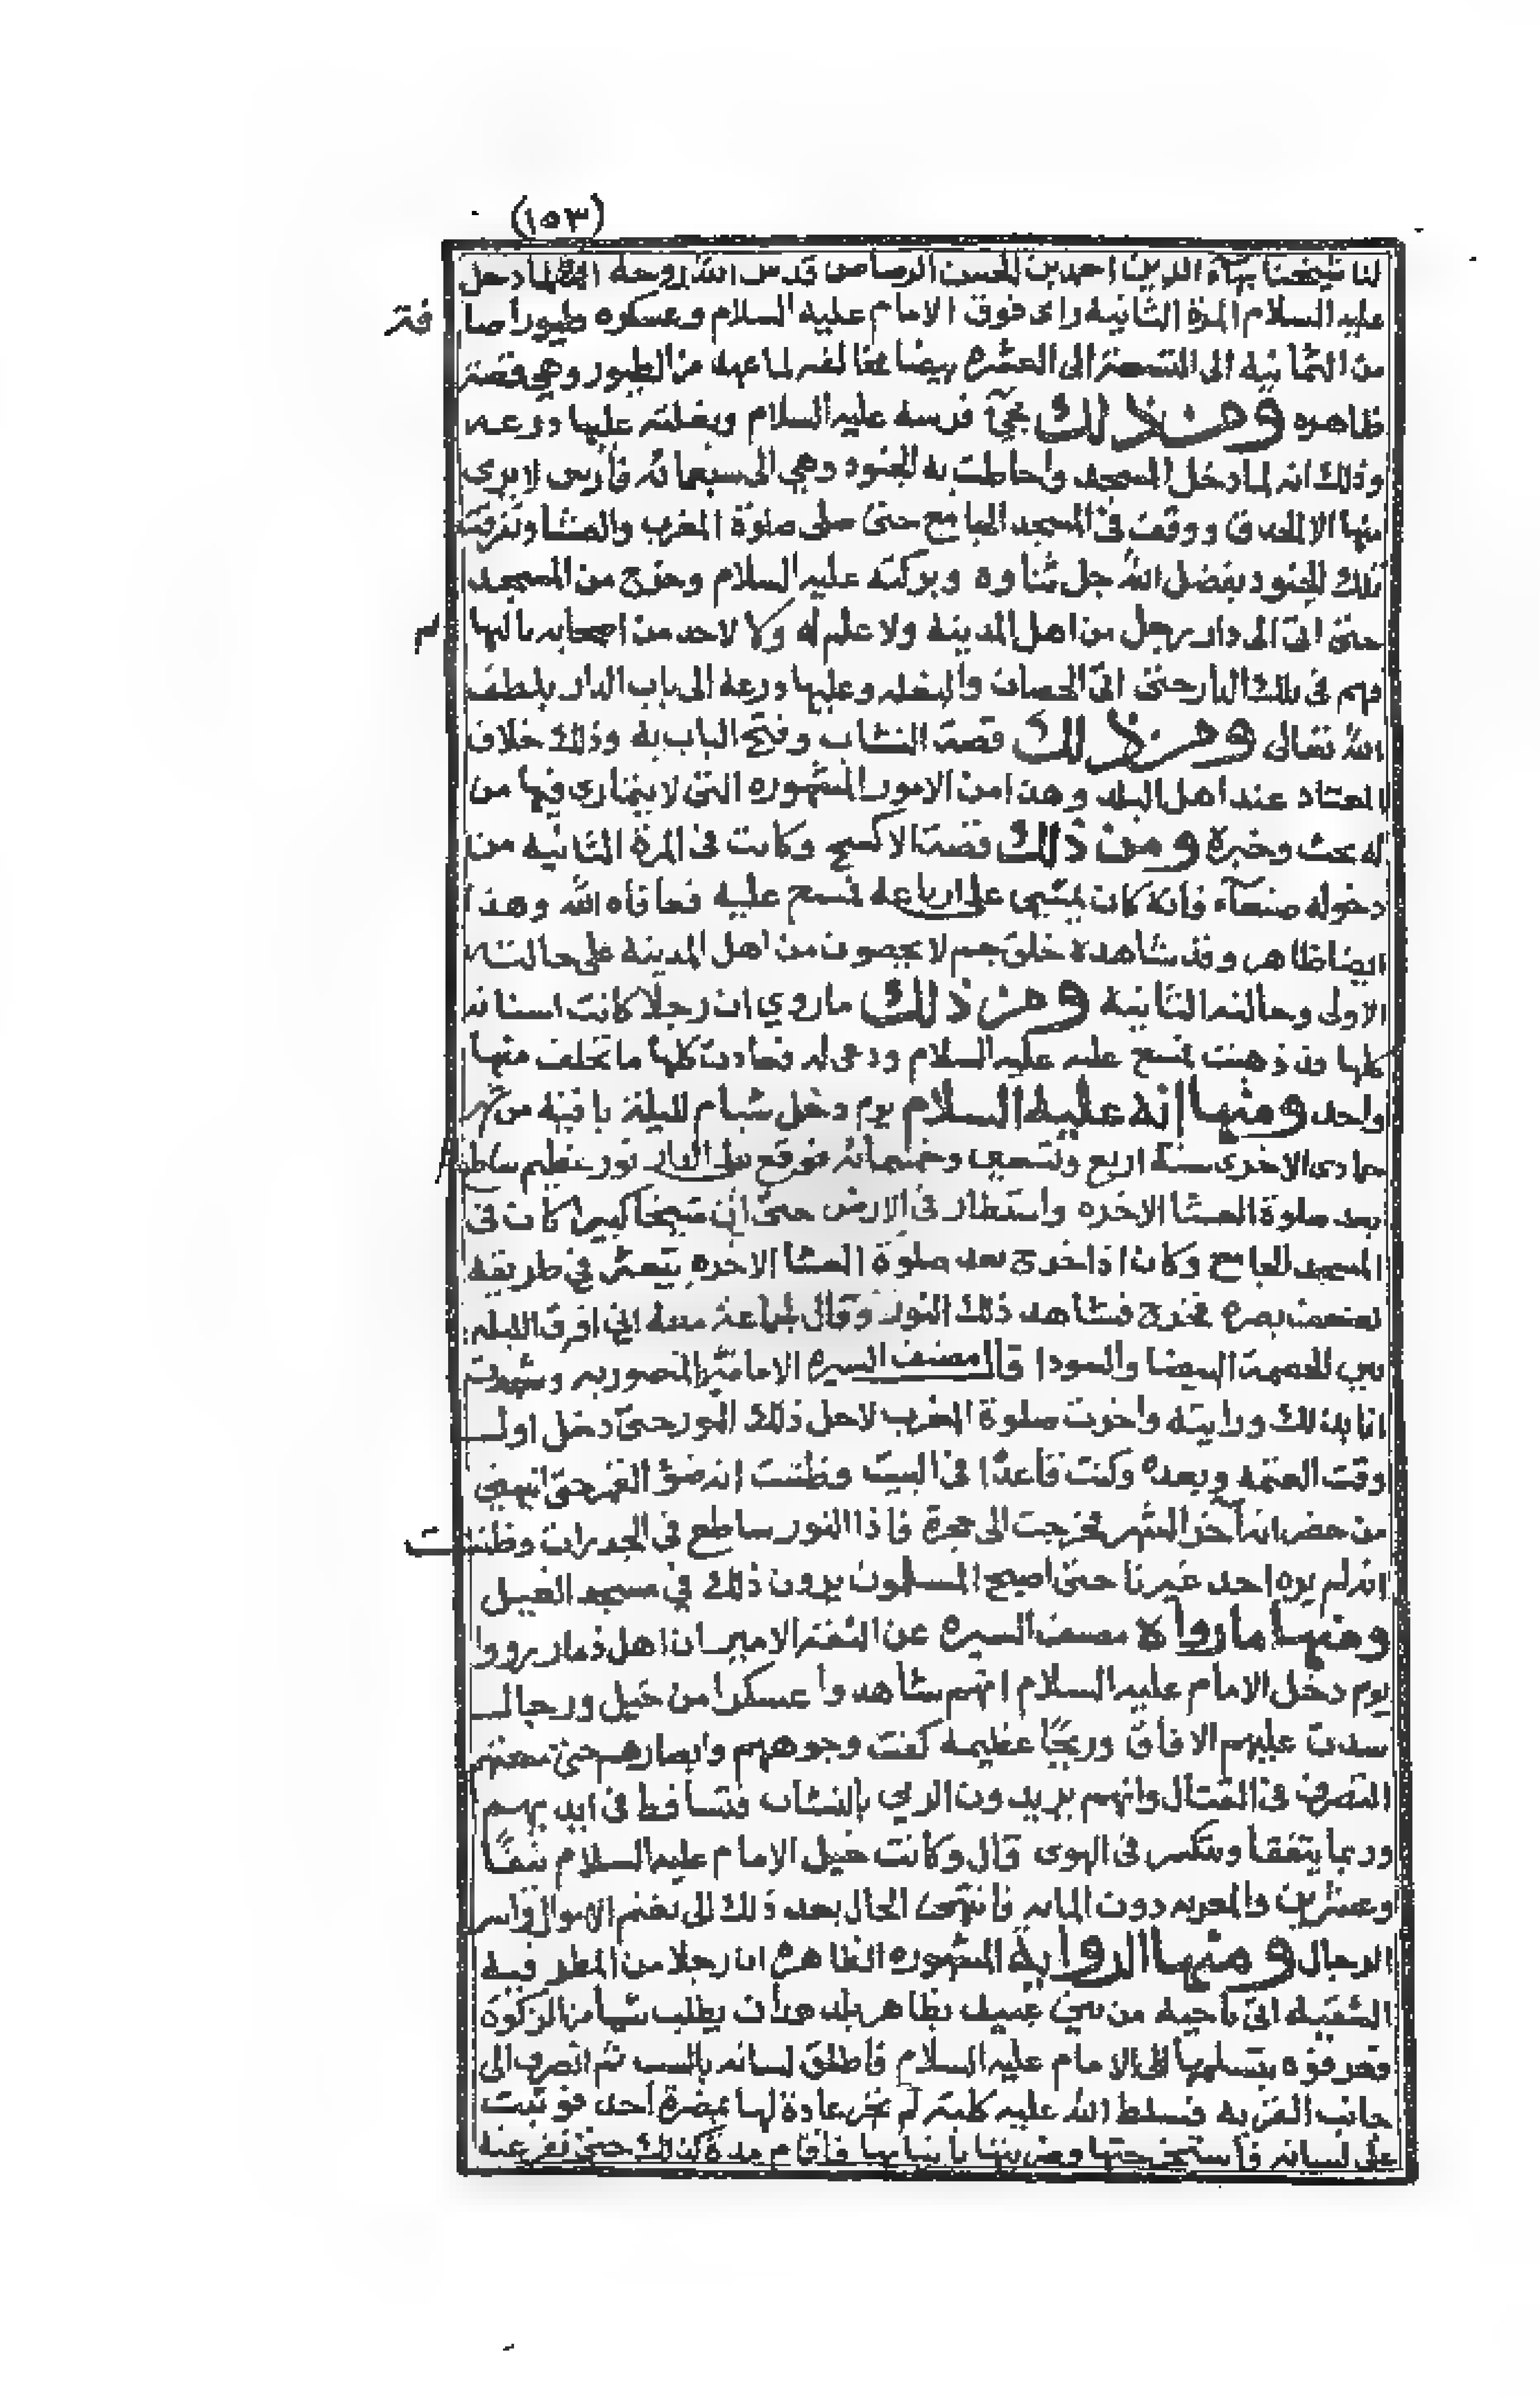 (١٥٣)
لنا شيخنا بهآء الدين احمد بن الحسن الرصاص قدس الله روحه انه لما دخل
عليه السلام المرة الثانية راى فوق الامام عليه السلام وعسكره طيورا صافة
من الثمانية الى التسعة الى العشره بيضا مخالفه لما عهد من الطيور وهي قصة
ظاهره ومن ذلك مجيء فرسه عليه السلام وبغلته عليها درعه
وذلك انه لما دخل المسجد واحاطت به الجنود وهي الى سبعمائه فارس لا يرى
منها الا الحدق ووقف في المسجد الجامع حتى صلى صلوة المغرب والعشا وتفرقت
تلك الجنود بفضل الله جل ثناوه وبركته عليه السلام وخرج من المسجد
حتى اتى الى دار رجل من اهل المدينة ولا علم له ولا لاحد من اصحابه بانها لهم
فهم في تلك الدار حتى اتى الحصان والبغله وعليها درعه الى باب الدار بلطف
الله تعالى ومن ذلك قصة النشاب وفتح الباب به وذلك خلاف
المعتاد عند اهل البلد وهذا من الامور المشهوره التي لا يتمارى فيها من
له بحث وخبرة ومن ذلك قصة الاكسح وكانت في المرة الثانية من
دخوله صنعآء فانه كان يمشي على ارباعه فمسح عليه فعافاه الله وهذا
ايضا ظاهر وقد شاهده خلق جم لا يحصون من اهل المدينة على حالته
الاولى وحالته الثانية ومن ذلك ماروي ان رجلا كانت اسنانه
كلها قد ذهبت فمسح عليه عليه السلام ودعى له فعادت كلها ما تخلف منها
واحد ومنها انه عليه السلام يوم دخل شبام لليلة باقية من شهر
جمادى الاخرى سنة اربع وتسعين وخمسمائه فوقع على الدار نور عظيم ساطع
بعد صلوة العشا الاخره واستطار في الارض حتى ان شيخا كبيرا كان في
المسجد الجامع وكان اذا خرج بعد صلوة العشا الاخره يتعثر في طريقه
لضعف بصره فخرج فشاهد ذلك النور وقال لجماعة معه اني افرق الليله
بين الحصية البيضا والسودا قال مصنف السيره الامامية المنصوريه وشهدت
انا بذلك ورايته واخرت صلوة المغرب لاجل ذلك النور حتى دخل اول
وقت العتمه وبعده وكنت قاعدا في البيت وظننت انه ضؤ القمر حتى نبهني
من حضر انه آخر الشهر فخرجت الى حجرة فاذا النور ساطع في الجدران وظننت
انه لم يره احد غيرنا حتى اصبح المسلمون يرون ذلك في مسجد الفيل
ومنها مارواه مصنف السيره عن الثقة الامير ان اهل ذمار رووا
يوم دخل الامام عليه السلام انهم شاهدوا عسكرا من خيل ورجال
سدت عليهم الافاق وريحًا عظيمه كفت وجوههم وابصارهم حتى منعتهم
التصرف في القتال وانهم يريدون الرمي بالنشاب فتساقط في ايديهم
وربما يتفقا وتتكسر في الهوى قال وكانت خيل الامام عليه السلام نيفًا
وعشرين والحربه دون المايه فانتهى الحال بعد ذلك الى تغنم الاموال واسر
الرجال ومنها الرواية المشهوره الظاهره ان رجلا من المطرفيه
الشقيه اتى ناحية من بني بظاهر بلد همدان يطلب شيأ من الزكوة
فعرفوه بتسليمها الى الامام عليه السلام فاطلق لسانه بالسب ثم انصرف الى
جانب القريه فسلط الله عليه كلبة لم تجر عادة لها بمضرة احد فوثبت
على لسانه فاستخرجتها بانيابها واقام مدة كذلك حتى